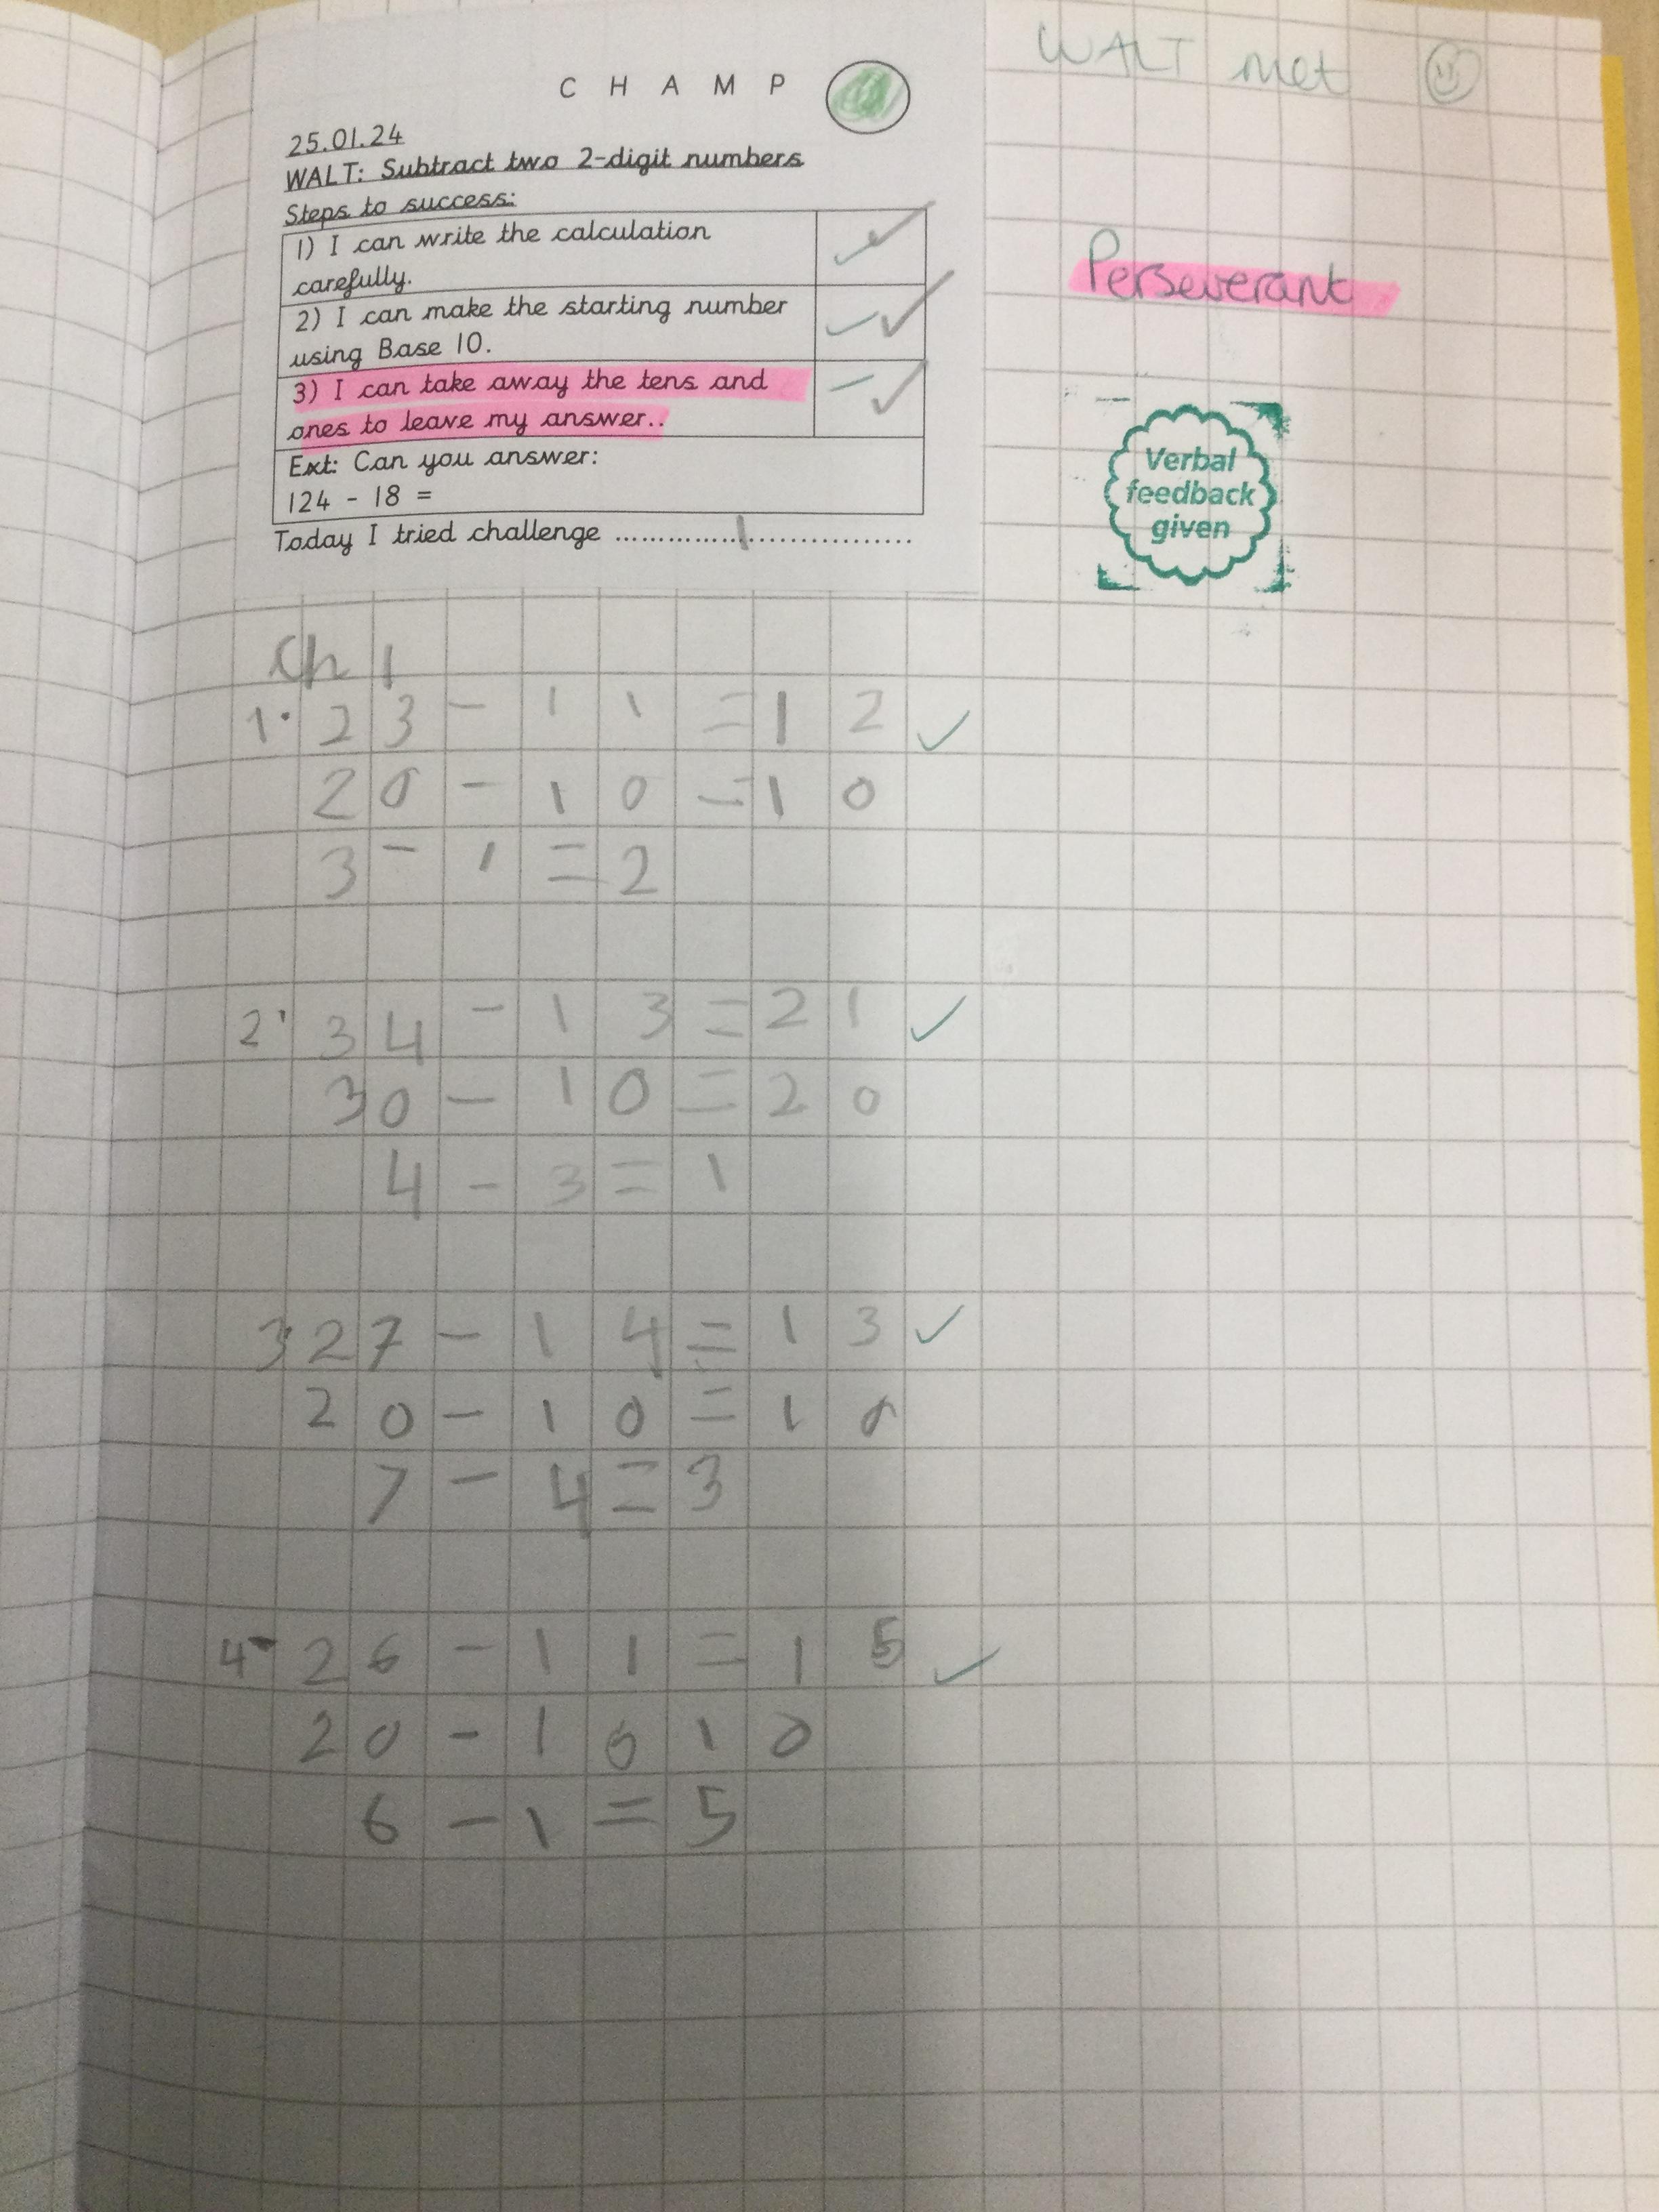 C H A M P
WALT met
25.01.24
WALT: Subtract two 2-digit numbers
Steps to success:
1) I can write the calculation
carefully.
2) I can make the starting number
using Base 10.
3) I can take away the tens and
ones to leave my answer..
Ext: Can you answer:
124 - 18 =
Today I tried challenge ...............1.................
Perseverant
Verbal
feedback
given
Ch 1
1. 23 - 11 = 12
20 - 10 = 10
3 - 1 = 2
2. 34 - 13 = 21
30 - 10 = 20
4 - 3 = 1
3. 27 - 14 = 13
20 - 10 = 10
7 - 4 = 3
4. 26 - 11 = 15
20 - 10 10
6 - 1 = 5